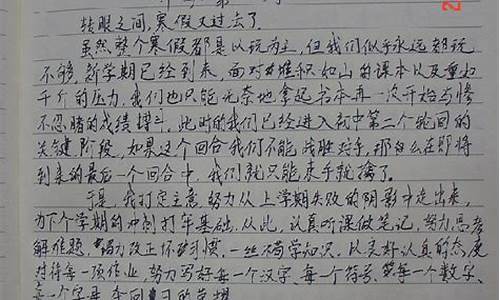 转眼之间，寒假又过去了。
虽然整个寒假都是以玩为主，但我们似乎永远都玩
不够。新学期已经到来，面对堆积如山的课本以及重如
千斤的压力，我们也只能无奈地拿起书本再一次开始与惨
不忍睹的成绩搏斗，此时的我们已经进入初中第二个轮回的
关键阶段，如果这个回合我们不能战胜对手，那么在即将
到来的最后一个回合中，我们就只能束手就擒了。
于是，我打定主意，努力从上学期失败的阴影中走出来，
为下个学期的冲刺打牢基础，从此，认真听课做笔记，努力思考
解难题，努力改正坏习惯，一丝不苟学知识。以良好认真的态度
对待每一项作业，努力写好每一个汉字、每一个符号、每一个数字、
每一个字母